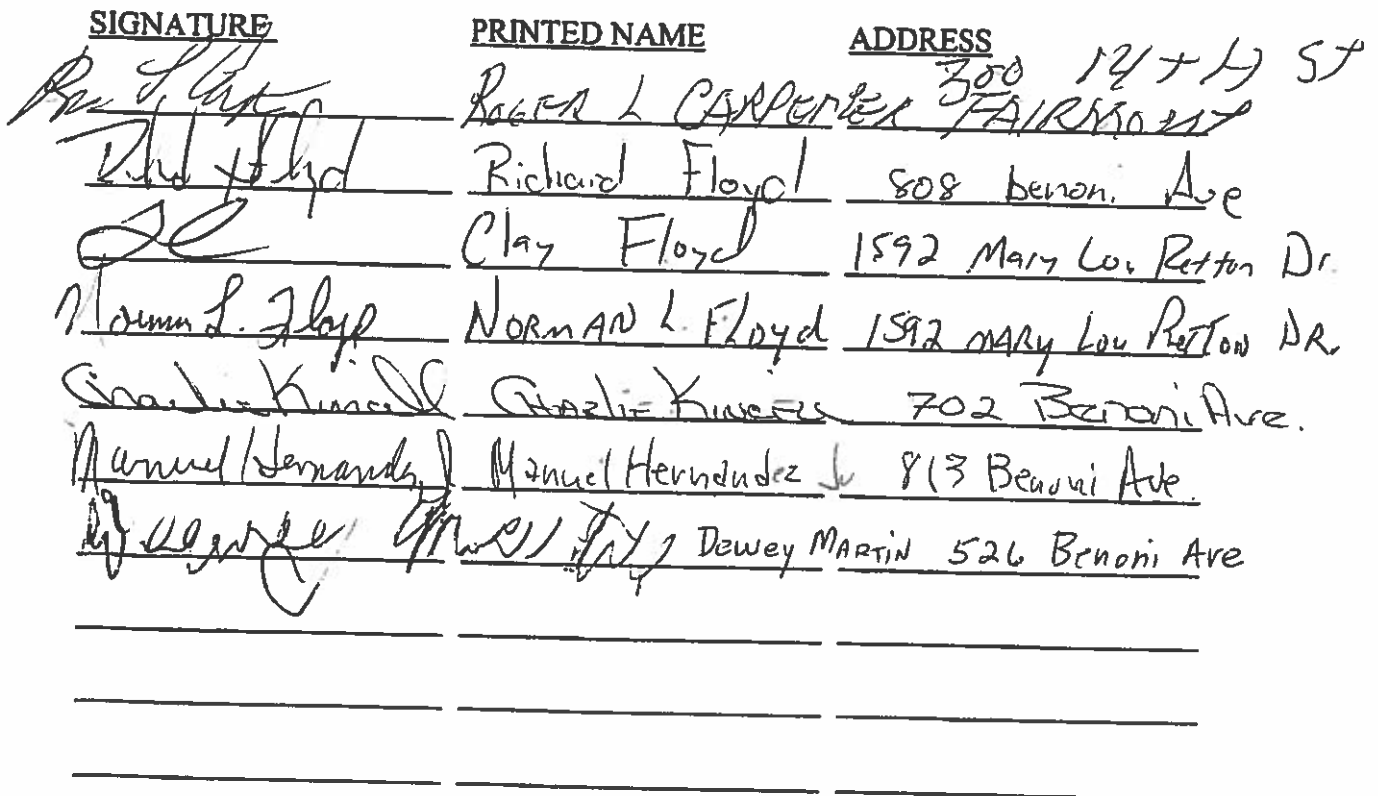 SIGNATURE PRINTED NAME ADDRESS
300 14TH ST
ROGER L CARPENTER FAIRMONT
Richard Floyd 808 benoni Ave
Clay Floyd 1592 Mary Lou Retton Dr.
Norman L. Floyd NORMAN L. FLOYD 1592 MARY Lou RETTON DR.
Charlie 702 Benoni Ave.
Manuel Hernandez Jr Manuel Hernandez Jr 813 Benoni Ave.
Dewey MARTIN 526 Benoni Ave